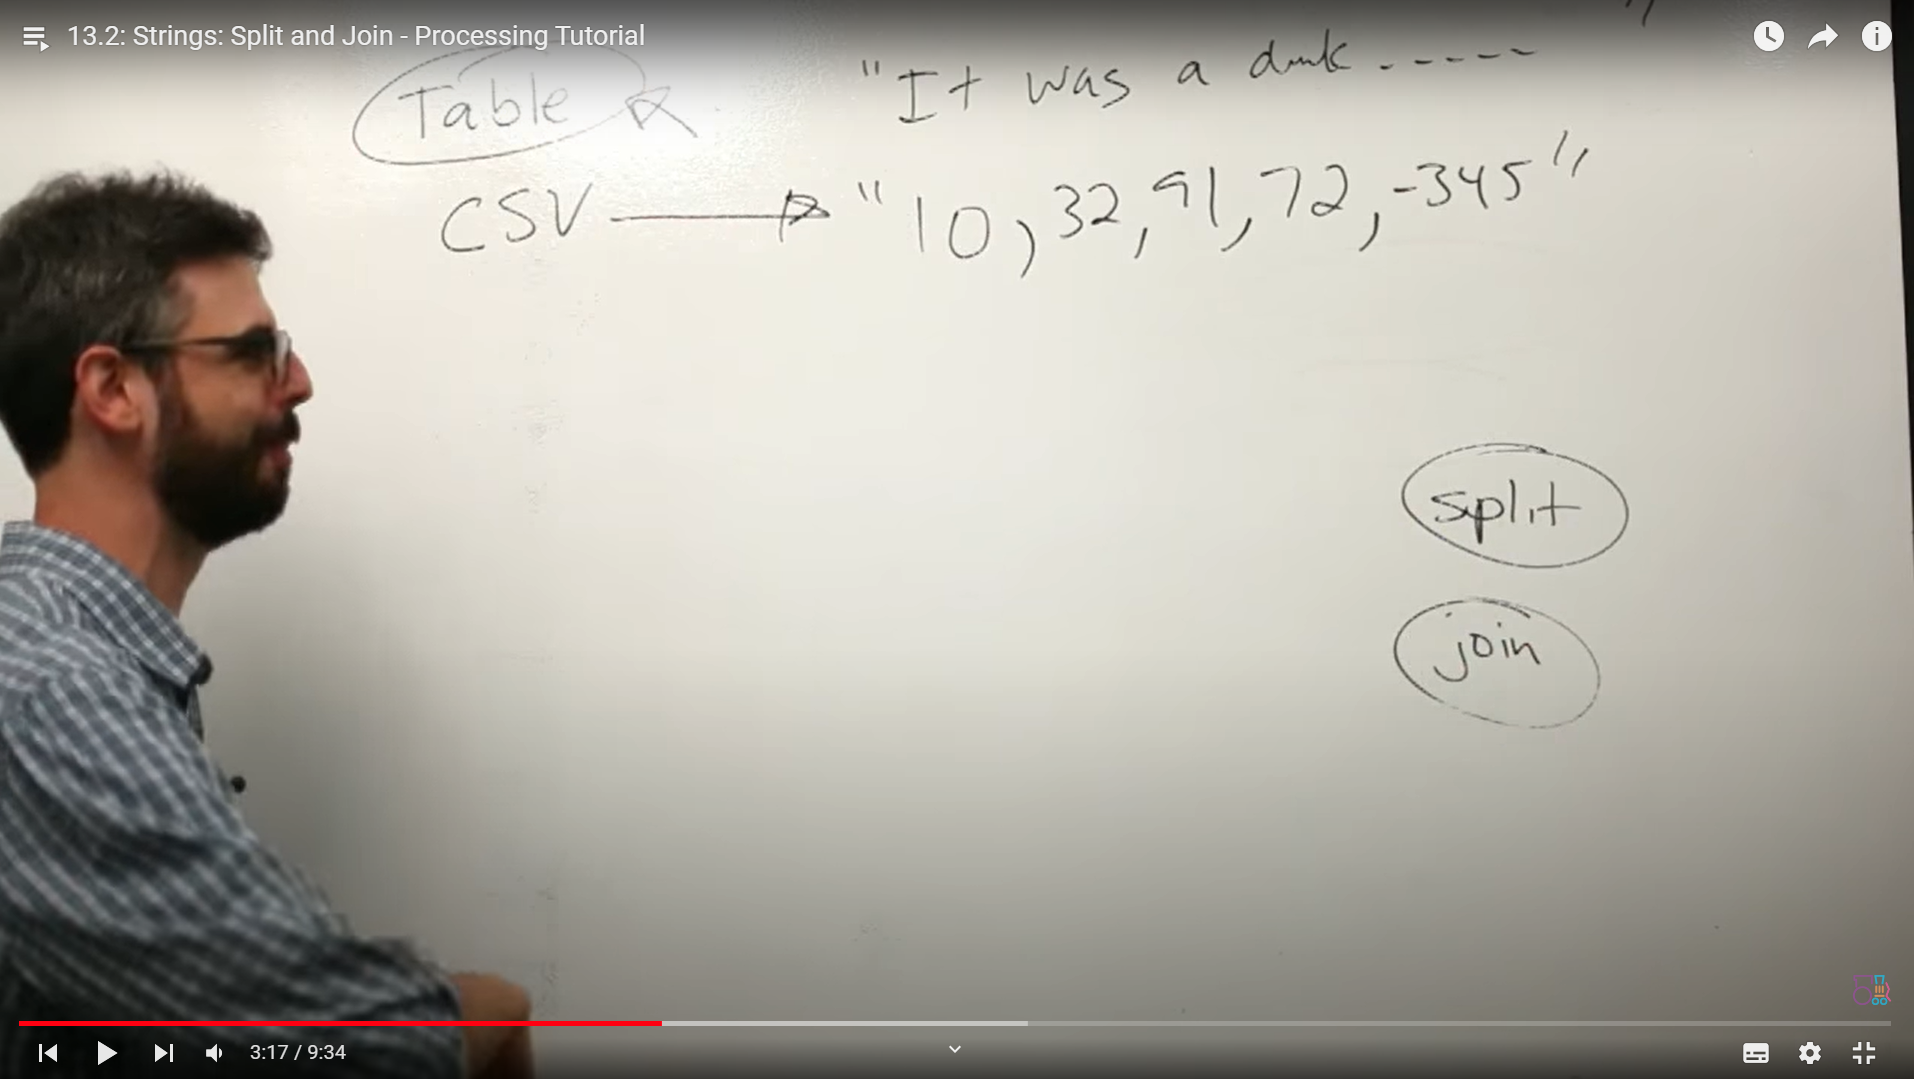 13.2: Strings: Split and Join - Processing Tutorial
Table
"It was a dark - - - - -"
CSV → "10, 32, 91, 72, -345"
split
join
3:17 / 9:34